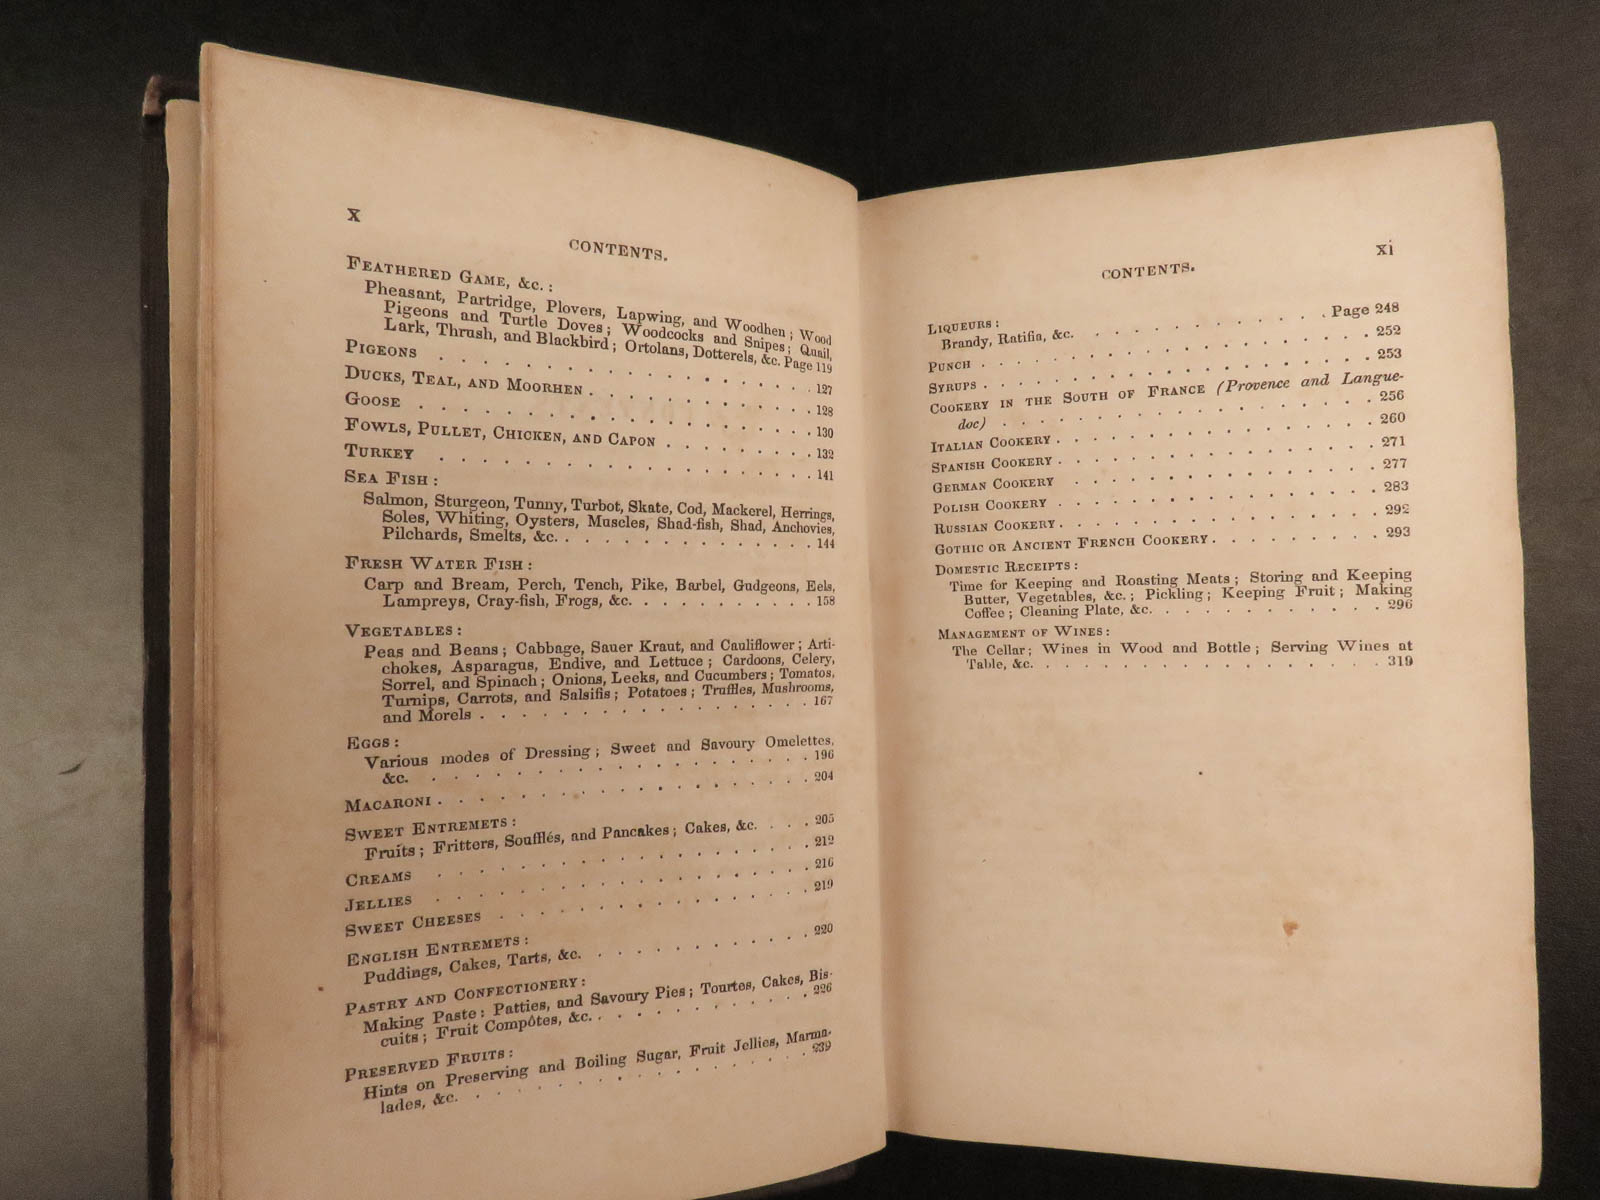 x
CONTENTS.
FEATHERED GAME, &c. :
Pheasant, Partridge, Plovers, Lapwing, and Woodhen ; Wood
Pigeons and Turtle Doves ; Woodcocks and Snipes ; Quail,
Lark, Thrush, and Blackbird ; Ortolans, Dotterels, &c. Page 119
PIGEONS . . . . . . . . . . . . . . 127
DUCKS, TEAL, AND MOORHEN . . . . . . . . . 128
GOOSE . . . . . . . . . . . . . . . 130
FOWLS, PULLET, CHICKEN, AND CAPON . . . . . . . 132
TURKEY . . . . . . . . . . . . . . 141
SEA FISH :
Salmon, Sturgeon, Tunny, Turbot, Skate, Cod, Mackerel, Herrings,
Soles, Whiting, Oysters, Muscles, Shad-fish, Shad, Anchovies,
Pilchards, Smelts, &c. . . . . . . . . . . . 144
FRESH WATER FISH :
Carp and Bream, Perch, Tench, Pike, Barbel, Gudgeons, Eels,
Lampreys, Cray-fish, Frogs, &c. . . . . . . . . . 158
VEGETABLES :
Peas and Beans ; Cabbage, Sauer Kraut, and Cauliflower ; Arti-
chokes, Asparagus, Endive, and Lettuce ; Cardoons, Celery,
Sorrel, and Spinach ; Onions, Leeks, and Cucumbers ; Tomatos,
Turnips, Carrots, and Salsifis ; Potatoes ; Truffles, Mushrooms,
and Morels . . . . . . . . . . . . . 167
EGGS :
Various modes of Dressing ; Sweet and Savoury Omelettes,
&c. . . . . . . . . . . . . . . . 196
MACARONI . . . . . . . . . . . . . . 204
SWEET ENTREMETS :
Fruits ; Fritters, Soufflés, and Pancakes ; Cakes, &c. . . . 205
CREAMS . . . . . . . . . . . . . . 212
JELLIES . . . . . . . . . . . . . . 216
SWEET CHEESES . . . . . . . . . . . . 219
ENGLISH ENTREMETS :
Puddings, Cakes, Tarts, &c. . . . . . . . . . . 220
PASTRY AND CONFECTIONERY :
Making Paste : Patties, and Savoury Pies ; Tourtes, Cakes, Bis-
cuits ; Fruit Compôtes, &c. . . . . . . . . . . 226
PRESERVED FRUITS :
Hints on Preserving and Boiling Sugar, Fruit Jellies, Marma-
lades, &c. . . . . . . . . . . . . . . 239
xi
CONTENTS.
LIQUEURS :
Brandy, Ratifia, &c. . . . . . . . . . . Page 248
PUNCH . . . . . . . . . . . . . . 252
SYRUPS . . . . . . . . . . . . . . 253
COOKERY IN THE SOUTH OF FRANCE (Provence and Langue-
doc) . . . . . . . . . . . . . . 256
ITALIAN COOKERY . . . . . . . . . . . . 260
SPANISH COOKERY . . . . . . . . . . . . 271
GERMAN COOKERY . . . . . . . . . . . . 277
POLISH COOKERY . . . . . . . . . . . . 283
RUSSIAN COOKERY . . . . . . . . . . . . 292
GOTHIC OR ANCIENT FRENCH COOKERY . . . . . . . . 293
DOMESTIC RECEIPTS :
Time for Keeping and Roasting Meats ; Storing and Keeping
Butter, Vegetables, &c. ; Pickling ; Keeping Fruit ; Making
Coffee ; Cleaning Plate, &c. . . . . . . . . . . 296
MANAGEMENT OF WINES :
The Cellar ; Wines in Wood and Bottle ; Serving Wines at
Table, &c. . . . . . . . . . . . . . . 319